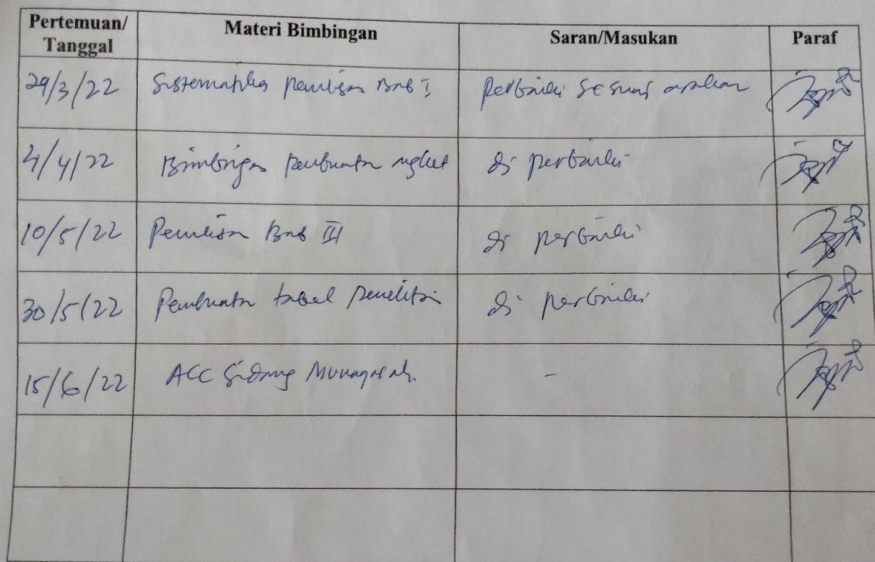 Pertemuan/ Tanggal Materi Bimbingan Saran/Masukan Paraf
29/3/22 Sistematika penulisan Bab I perbaiki sesuai arahan
4/4/22 Bimbingan pembuatan angket di perbaiki
10/5/22 Penulisan Bab III di perbaiki
30/5/22 Pembuatan tabel penelitian di perbaiki
15/6/22 ACC Sidang Munaqasah. -